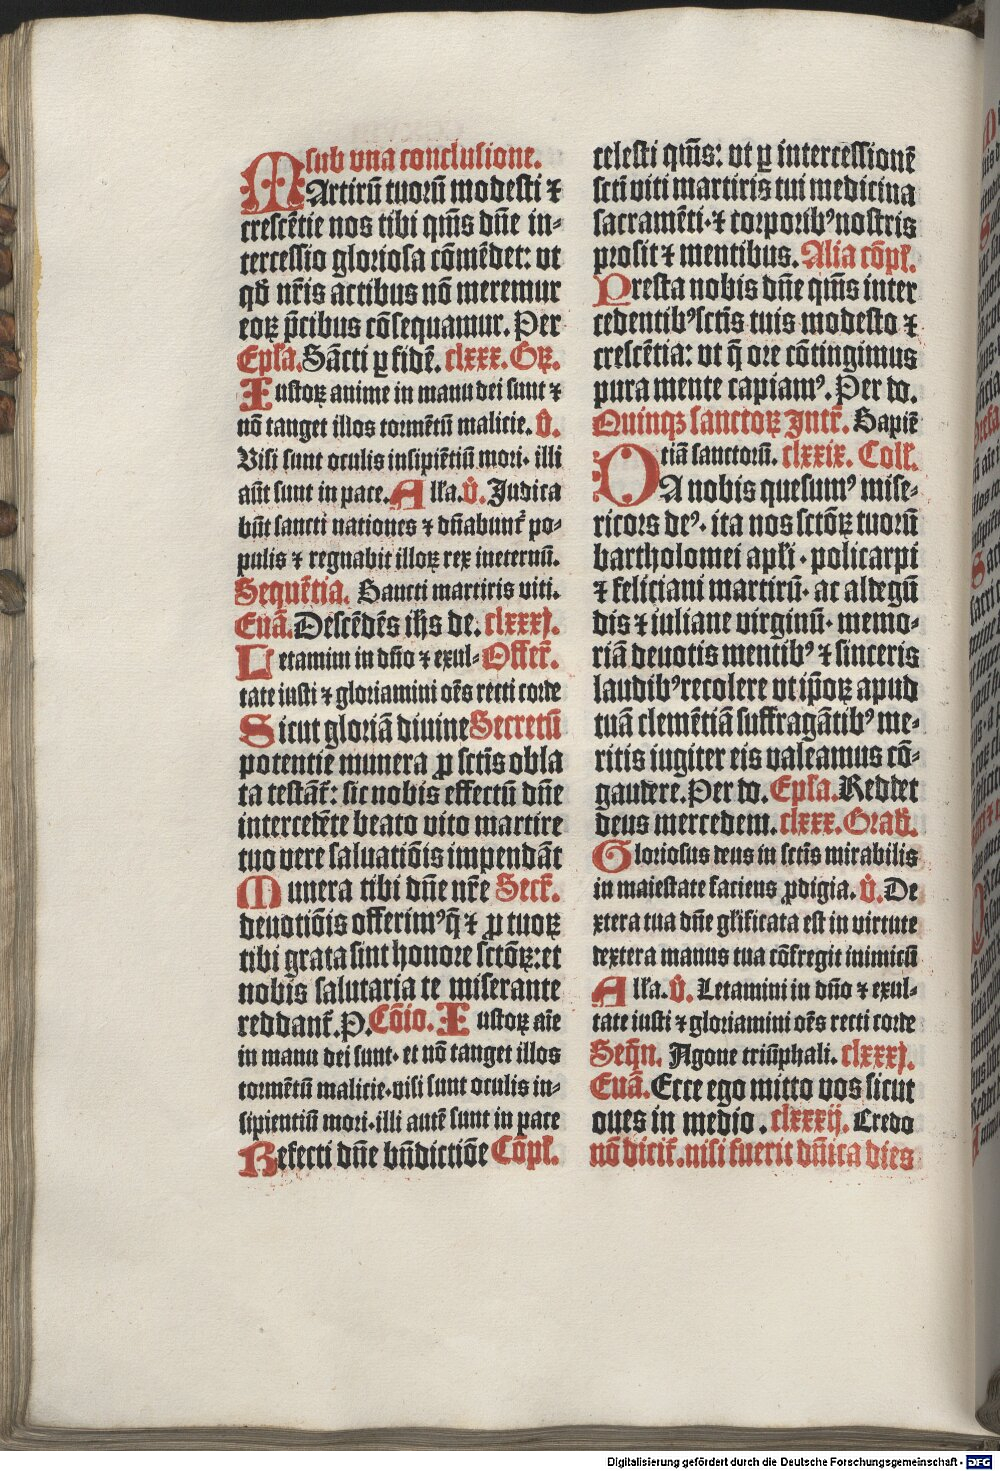 sub vna conclusione.
MArtirū tuorū modesti ⁊
crescētie nos tibi qm̄s dn̄e in⸗
tercessio gloriosa cōmēdet: vt
qd̄ nr̄is actibus nō meremur
eoꝝ p̄cibus cōsequamur. Per
Ep̄la. Sācti ꝑ fidē. clxxx. Gꝝ.
Iustoꝝ anime in manu dei sunt ⁊
nō tanget illos tormētū malicie. V̄.
Visi sunt oculis insipiētiū mori· illi
aūt sunt in pace. Alla. V̄. Judica
būt sancti nationes ⁊ dn̄abunt̄ po⸗
pulis ⁊ regnabit illoꝝ rex ineternū.
Sequētia. Sancti martiris viti.
Euā. Descēdēs ih̄s de. clxxxj.
Letamini in dn̄o ⁊ exul⸗ Offer̄.
tate iusti ⁊ gloriamini oēs recti corde
Sicut gloriā diuine Secretū
potentie munera ꝓ sctīs obla
ta testāt̄: sic nobis effectū dn̄e
intercedēte beato vito martire
tuo vere saluatiōis impendāt
Munera tibi dn̄e nr̄e Secr̄.
deuotiōis offerimꝰ q̄ ⁊ ꝓ tuoꝝ
tibi grata sint honore sctōꝝ: et
nobis salutaria te miserante
reddant̄. P. Cōio. Iustoꝝ aīe
in manu dei sunt· et nō tanget illos
tormētū malicie·visi sunt oculis in⸗
sipientiū mori·illi autē sunt in pace
Refecti dn̄e bn̄dictiōe Cōpl̄.
celesti qm̄s: vt ꝑ intercessionē
sctī viti martiris tui medicina
sacramēti·⁊ corporibꝰ nostris
prosit ⁊ mentibus. Alia cōpl̄.
Presta nobis dn̄e qm̄s inter
cedentibꝰ sctīs tuis modesto ⁊
crescētia: vt q̄ ore cōtingimus
pura mente capiamꝰ. Per do.
Quinqꝫ sanctoꝝ Intr̄. Sapiē
tiā sanctorū. clxxix. Coll̄.
DA nobis quesumꝰ mise⸗
ricors deꝰ· ita nos sctōꝝ tuorū
bartholomei apl̄i · policarpi
⁊ feliciani martirū· ac aldegū
dis ⁊ iuliane virginū· memo⸗
riā deuotis mentibꝰ ⁊ sinceris
laudibꝰ recolere vt ip̄oꝝ apud
tuā clemētiā suffragātibꝰ me⸗
ritis iugiter eis valeamus cō⸗
gaudere. Per do. Ep̄la. Reddet
deus mercedem. clxxx. Grad̄.
Gloriosus deus in sctīs mirabilis
in maiestate faciens ꝓdigia. V̄. De
xtera tua dn̄e gl̄ificata est in virtute
dextera manus tua cōfregit inimicū
Alla. V̄. Letamini in dn̄o ⁊ exul⸗
tate iusti ⁊ gloriamini oēs recti corde
Seqn̄. Agone triūphali. clxxxj.
Euā. Ecce ego mitto vos sicut
oues in medio . clxxxij. Credo
nō dicit̄. nisi fuerit dn̄ica dies
Digitalisierung gefördert durch die Deutsche Forschungsgemeinschaft - DFG